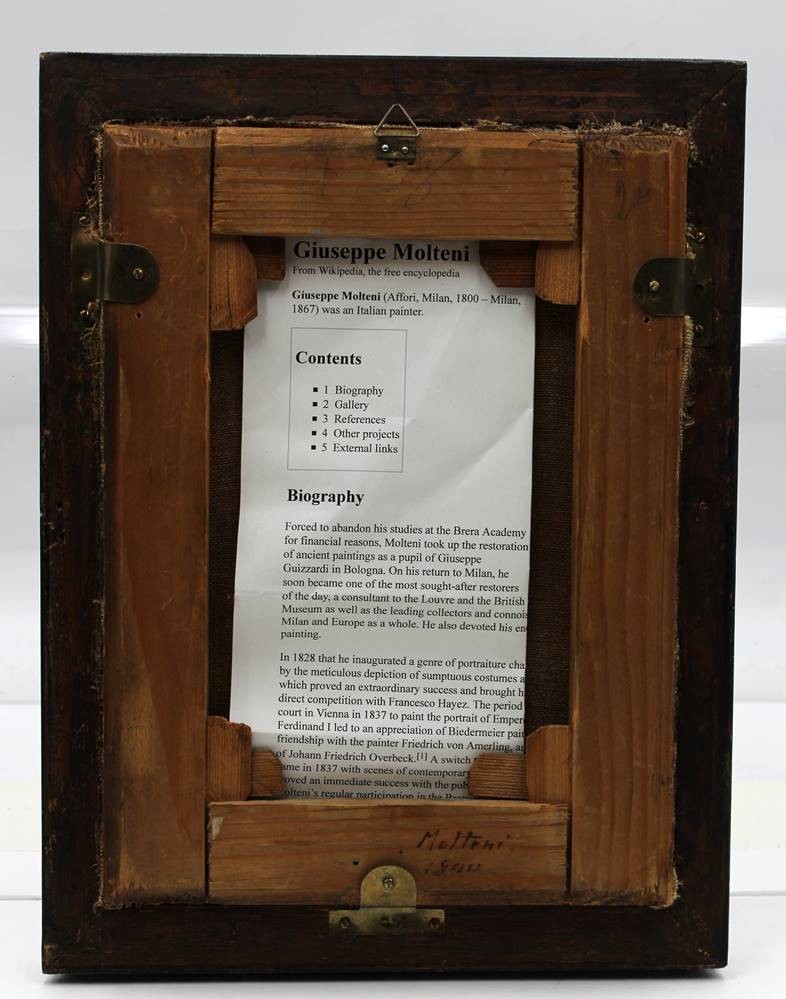 Giuseppe Molteni
From Wikipedia, the free encyclopedia
Giuseppe Molteni (Affori, Milan, 1800 – Milan,
1867) was an Italian painter.
Contents
1 Biography
2 Gallery
3 References
4 Other projects
5 External links
Biography
Forced to abandon his studies at the Brera Academy
for financial reasons, Molteni took up the restoration
of ancient paintings as a pupil of Giuseppe
Guizzardi in Bologna. On his return to Milan, he
soon became one of the most sought-after restorers
of the day, a consultant to the Louvre and the British
Museum as well as the leading collectors and connois
Milan and Europe as a whole. He also devoted his en
painting.
In 1828 that he inaugurated a genre of portraiture cha
by the meticulous depiction of sumptuous costumes a
which proved an extraordinary success and brought h
direct competition with Francesco Hayez. The period
court in Vienna in 1837 to paint the portrait of Emper
Ferdinand I led to an appreciation of Biedermeier pain
friendship with the painter Friedrich von Amerling, an
of Johann Friedrich Overbeck.[1] A switch
ame in 1837 with scenes of contemporary
oved an immediate success with the pub
olteni's regular participation in the
Molteni.